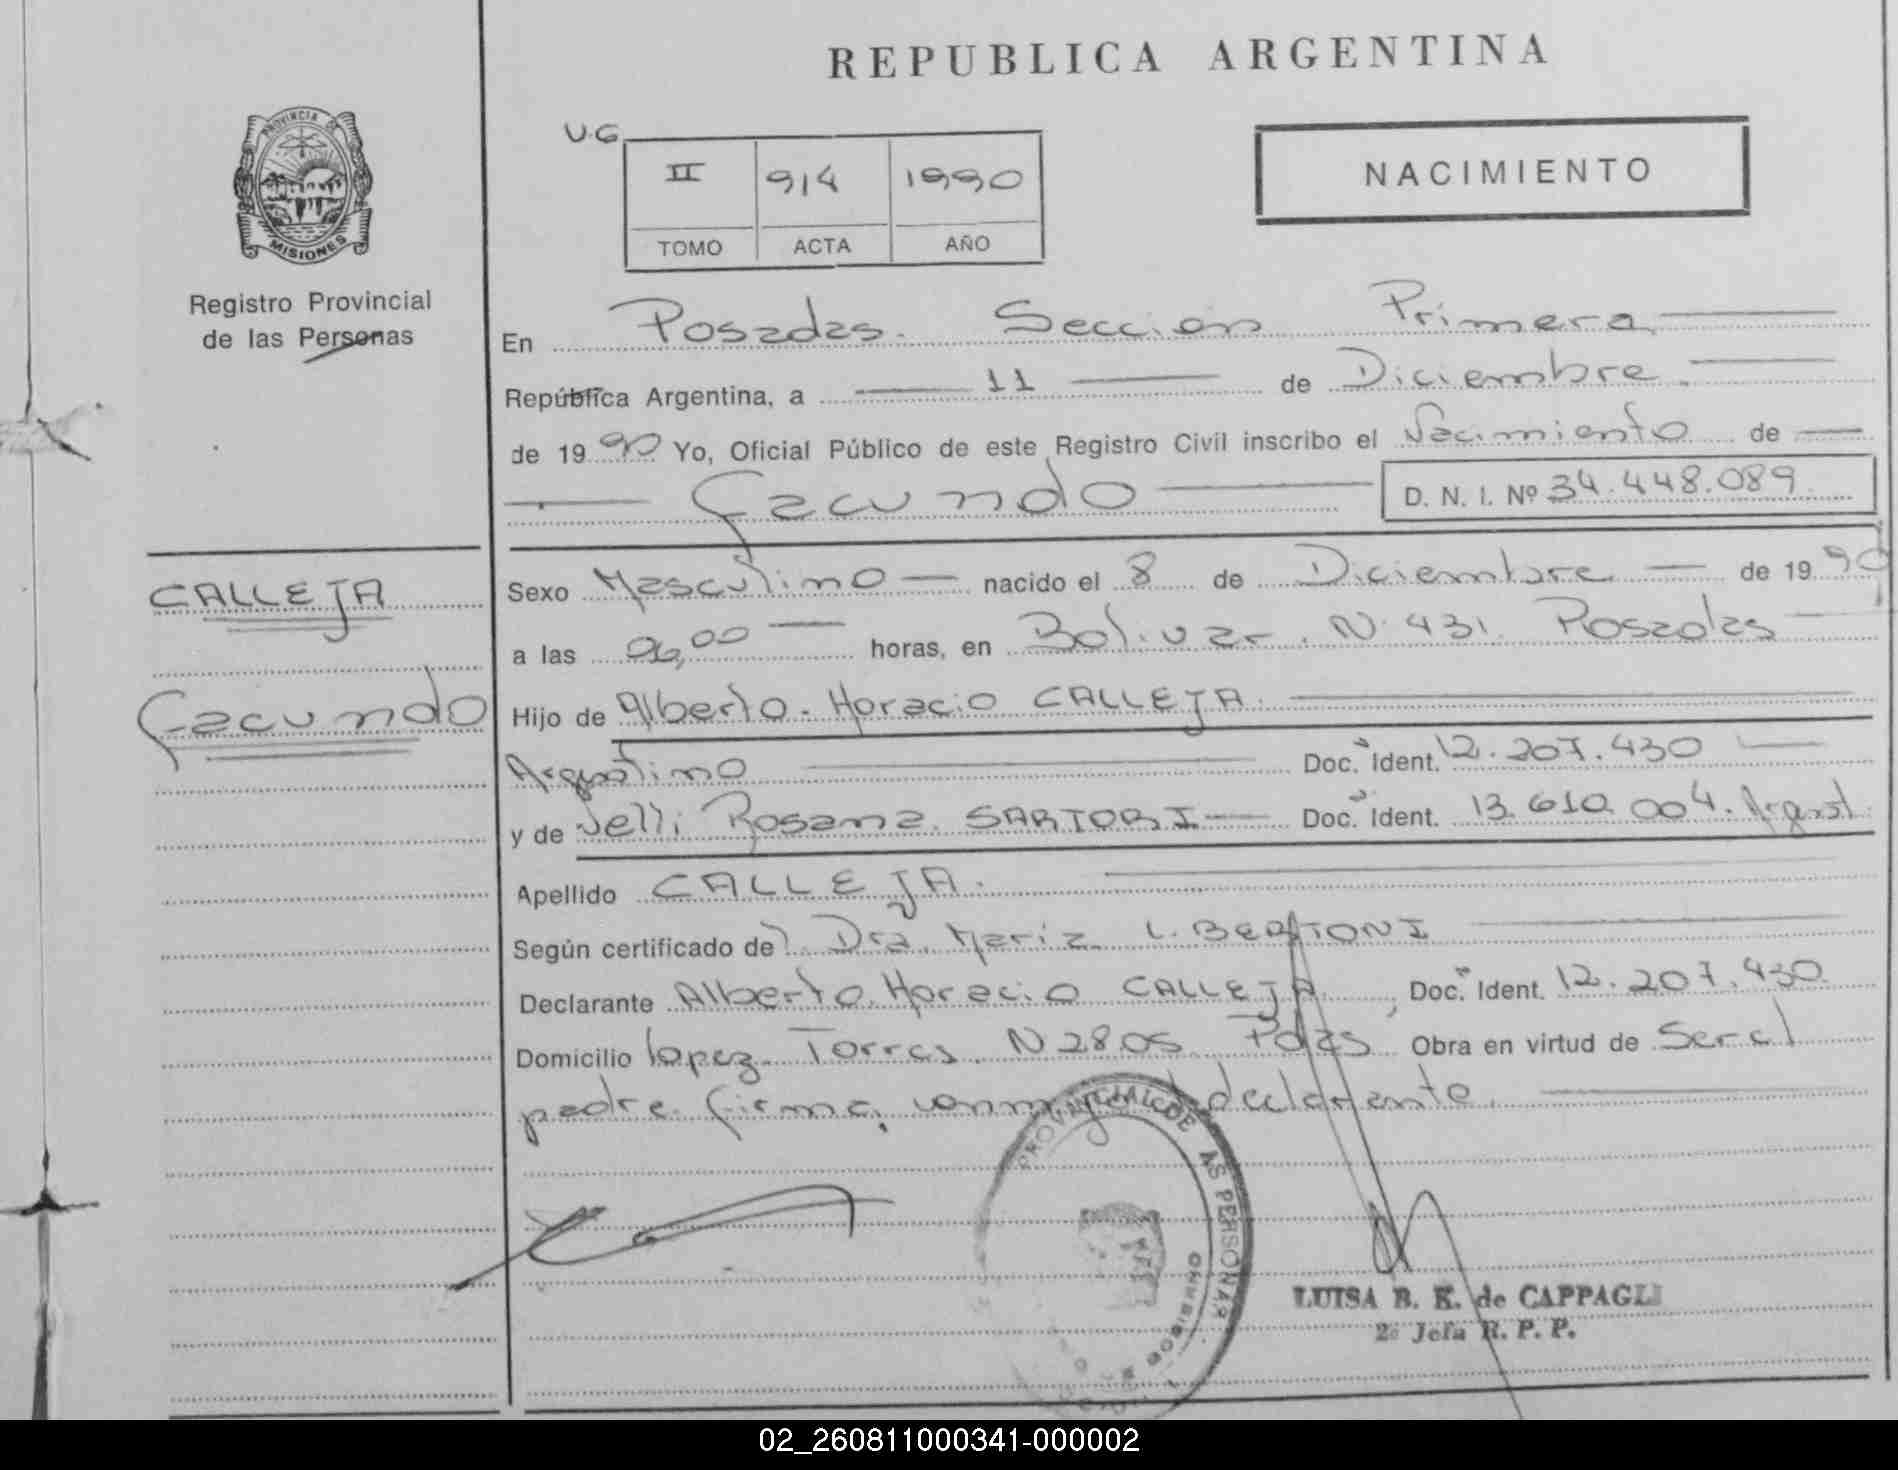 REPUBLICA ARGENTINA
PROVINCIA DE
MISIONES
Registro Provincial
de las Personas
U.G
II 914 1990
TOMO ACTA AÑO
NACIMIENTO
En Posadas. Sección Primera
República Argentina, a 11 de Diciembre.
de 1990 Yo, Oficial Público de este Registro Civil inscribo el Nacimiento de
Facundo D. N. I. Nº 34.448.089
CALLEJA
Facundo
Sexo Masculino nacido el 8 de Diciembre de 1990
a las 06,00 horas, en Bolivar. N. 431. Posadas
Hijo de Alberto. Horacio CALLEJA.
Argentino Doc. Ident. 12.207.430
y de Nelli Rosana SARTORI Doc. Ident. 13.610.004. Argent.
Apellido CALLEJA.
Según certificado de Dra. Maria L. BERTONI
Declarante Alberto Horacio CALLEJA, Doc. Ident. 12.207.430
Domicilio lopez Torres N 2805 Pdas Obra en virtud de Ser el
padre. firma, conmigo declarante.
PROVINCIAL DE AS PERSONAS
LUISA B. K. de CAPPAGLI
2º Jefa R. P. P.
02_260811000341-000002